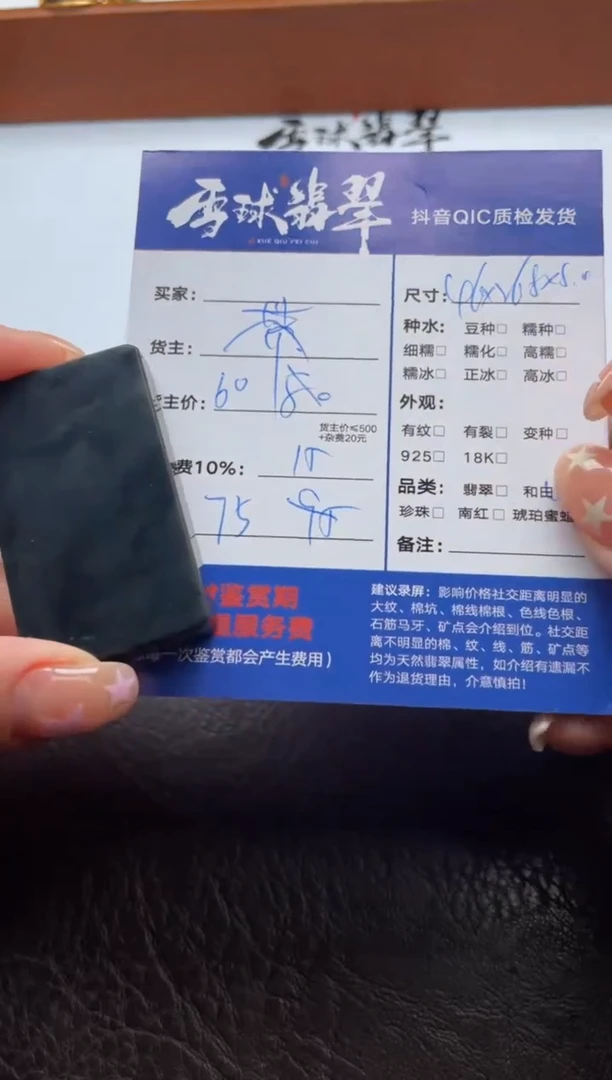 雪球翡翠
雪球翡翠
XUE QIU FEI CUI
抖音QIC质检发货
买家:
货主:
主价: 60
货主价≤500
+杂费20元
费10%: 15
75 95
鉴赏期
服务费
一次鉴赏都会产生费用)
尺寸:
种水: 豆种□ 糯种□
细糯□ 糯化□ 高糯□
糯冰□ 正冰□ 高冰□
外观:
有纹□ 有裂□ 变种□
925□ 18K□
品类: 翡翠□ 和田
珍珠□ 南红□ 琥珀蜜蜡
备注:
建议录屏: 影响价格社交距离明显的
大纹、棉坑、棉线棉根、色线色根、
石筋马牙、矿点会介绍到位。社交距
离不明显的棉、纹、线、筋、矿点等
均为天然翡翠属性，如介绍有遗漏不
作为退货理由，介意慎拍!